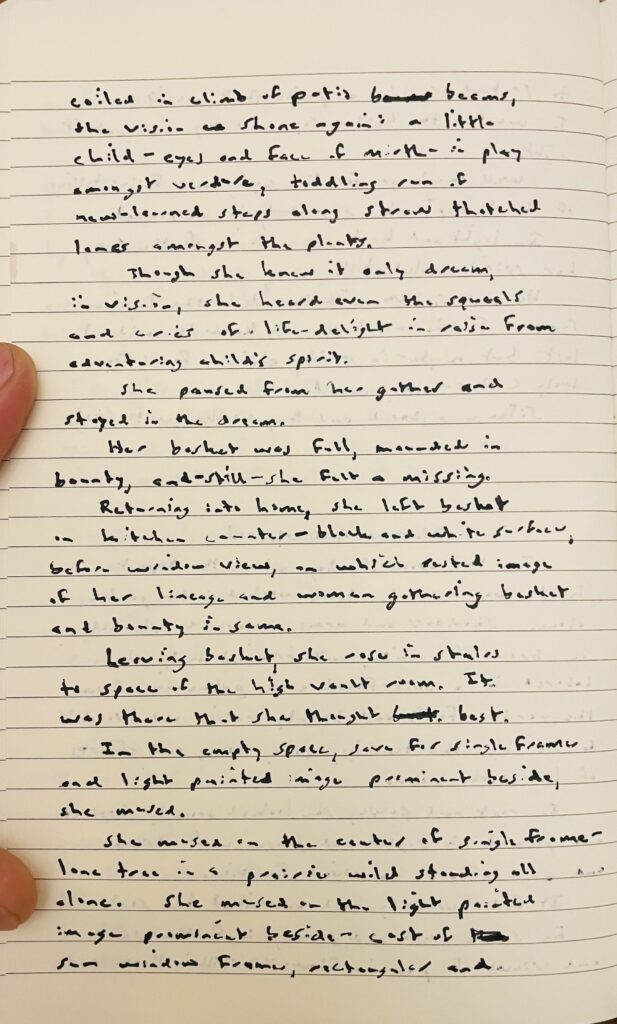 coiled in climb of patio beams,
the vision shone again: a little
child - eyes and face of mirth - in play
amongst verdure, toddling run of
new-learned steps along straw thatched
lanes amongst the plants.
Though she knew it only dream,
in vision, she heard even the squeals
and cries of life-delight in raise from
adventuring child's spirit.
She paused from her gather and
stayed in the dream.
Her basket was full, mounded in
bounty, and-still-she felt a missing.
Returning into home, she left basket
on kitchen counter - black and white surface,
before window view, on which rested image
of her lineage and women gathering basket
and bounty in same.
Leaving basket, she rose in stairs
to space of the high vault room. It
was there that she thought best.
In the empty space, save for single frame
and light painted image prominent beside,
she mused.
She mused on the center of single frame -
lone tree in a prairie wild standing all
alone. She mused on the light painted
image prominent beside - cast of
sun window frame, rectangular and